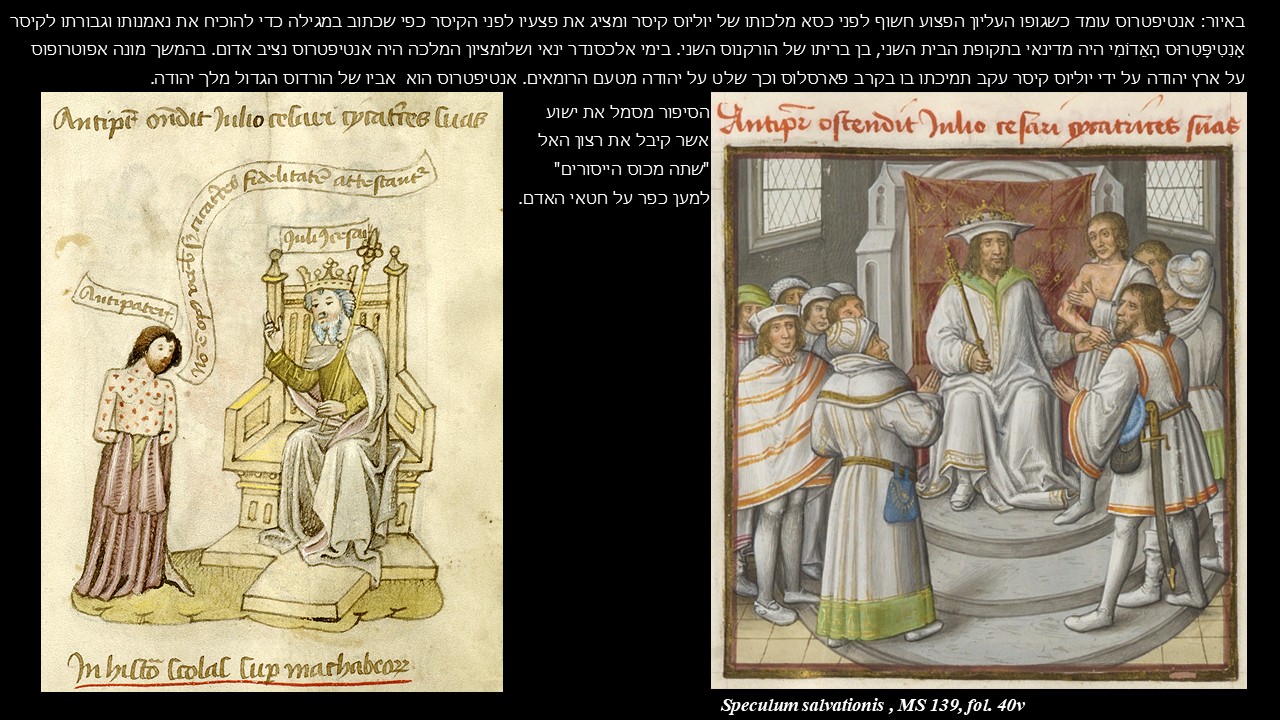 באיור: אנטיפטרוס עומד כשגופו העליון הפצוע חשוף לפני כסא מלכותו של יוליוס קיסר ומציג את פצעיו לפני הקיסר כפי שכתוב במגילה כדי להוכיח את נאמנותו וגבורתו לקיסר
אַנְטִיפָּטְרוּס הָאֲדוֹמִי היה מדינאי בתקופת הבית השני, בן בריתו של הורקנוס השני. בימי אלכסנדר ינאי ושלומציון המלכה היה אנטיפטרוס נציב אדום. בהמשך מונה אפוטרופוס
על ארץ יהודה על ידי יוליוס קיסר עקב תמיכתו בו בקרב פארסלוס וכך שלט על יהודה מטעם הרומאים. אנטיפטרוס הוא אביו של הורדוס הגדול מלך יהודה.
הסיפור מסמל את ישוע
אשר קיבל את רצון האל
"שתה מכוס הייסורים"
למען כפר על חטאי האדם.
Antipr̄ ostendit Julio cesari cycatrices suas
Antipr̄ ondit Julio cesari cycatrices suas
fidelitatē attestant
Juli9 cesar
Antipater
In histō scolas sup machabeorz
Speculum salvationis , MS 139, fol. 40v